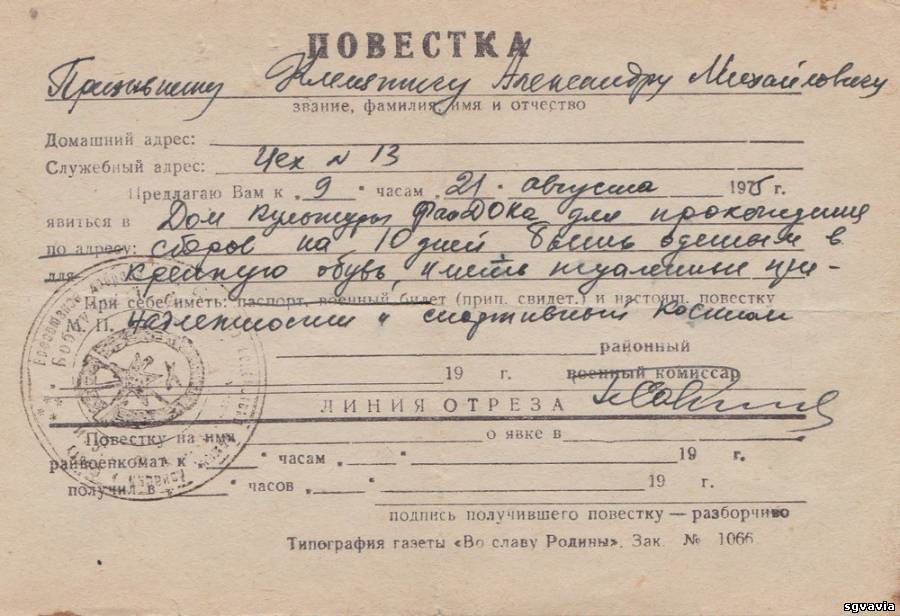 ПОВЕСТКА
Призывнику Александру Михайловичу
звание, фамилия, имя и отчество
Домашний адрес:
Служебный адрес: Цех N 13
Предлагаю Вам к „9“ часам „21“ августа 1975 г.
явиться в Дом Культуры ФанДОКа для прохождения
по адресу: сборов на 10 дней быть одетым в
для крепкую обувь, иметь туалетные при-
При себе иметь: паспорт, военный билет (прип. свидет.) и настоящ. повестку
М. П. надлежности и спортивный костюм
районный
„ “ 19 г. военный комиссар
ЛИНИЯ ОТРЕЗА
Повестку на имя о явке в
райвоенкомат к „ “ часам „ “ 19 г.
получил в „ “ часов „ “ 19 г.
подпись получившего повестку — разборчиво
Типография газеты «Во славу Родины». Зак. № 1066.
sgvavia